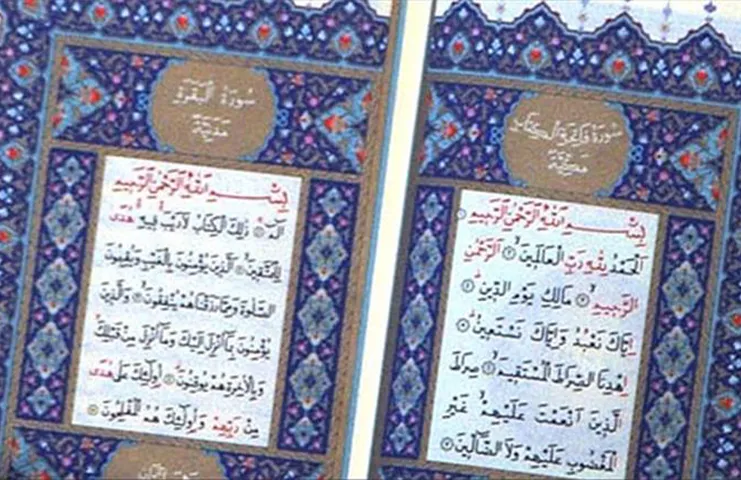 سورة فاتحة الكتاب
مكية
بسم الله الرحمن الرحيم
الحمد لله رب العالمين الرحمن
الرحيم مالك يوم الدين
اياك نعبد واياك نستعين
اهدنا الصراط المستقيم صراط
الذين انعمت عليهم غير
المغضوب عليهم ولا الضالين
سورة البقرة
مدنية
بسم الله الرحمن الرحيم
الم ذلك الكتاب لا ريب فيه هدى
للمتقين الذين يؤمنون بالغيب ويقيمون
الصلوة ومما رزقناهم ينفقون والذين
يؤمنون بما انزل اليك وما انزل من قبلك
وبالاخرة هم يوقنون اولئك على هدى
من ربهم واولئك هم المفلحون